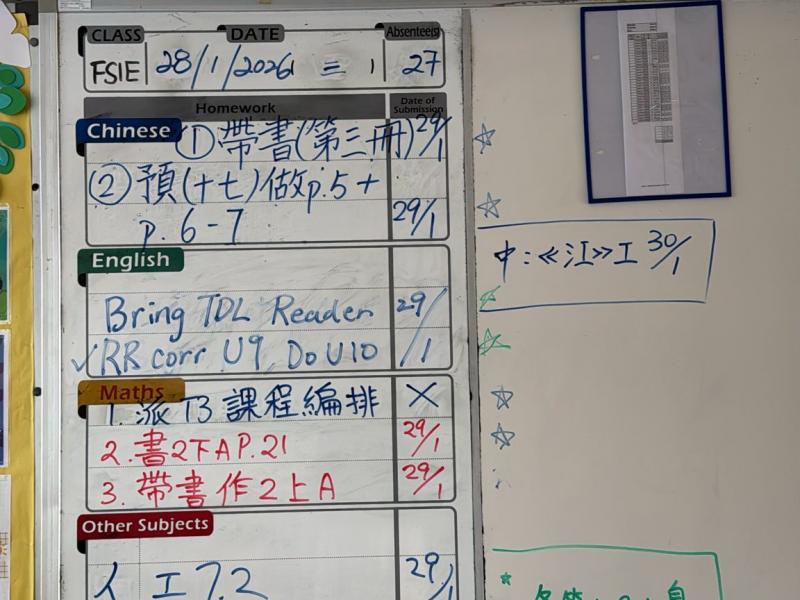 CLASS DATE Absentee(s)
FSIE 28/1/2026 三 27
Homework Date of Submission
Chinese ①帶書(第三冊) 29/1
②預(十七)做p.5+
p.6-7 29/1
English
Bring TDL Reader 29/1
✓RR corr U9, Do U10
Maths
1. 派T3課程編排 X
2. 書2下A P.21 29/1
3. 帶書作2上A 29/1
Other Subjects
人工7.2 29/1
中:《江》工 30/1